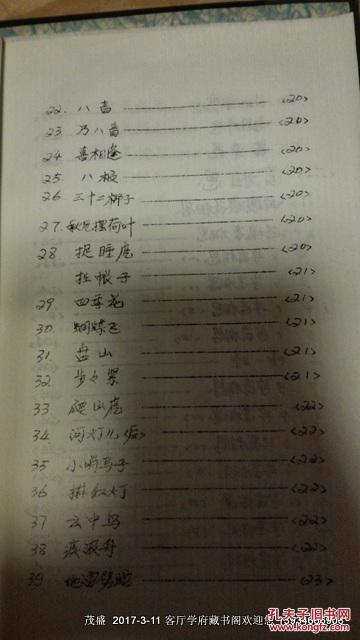 22. 八音 <20>
23. 乃八音 <20>
24. 喜相逢 <20>
25. 八板 <20>
26 三十二梆子 <20>
27. 秋风摆荷叶 <20>
28. 捉睡虎 <20>
挂帐子 <21>
29. 四季花 <21>
30. 蝴蝶飞 <21>
31. 盘山 <21>
32. 步々紧 <21>
33. 爬山虎 <22>
34 河灯儿 <22>
35 小两马子 <22>
36 挑红灯 <22>
37 云中鸟 <22>
38 <22>
39 <23>
茂盛 2017-3-11 客厅学府藏书阁欢迎您
孔夫子旧书网